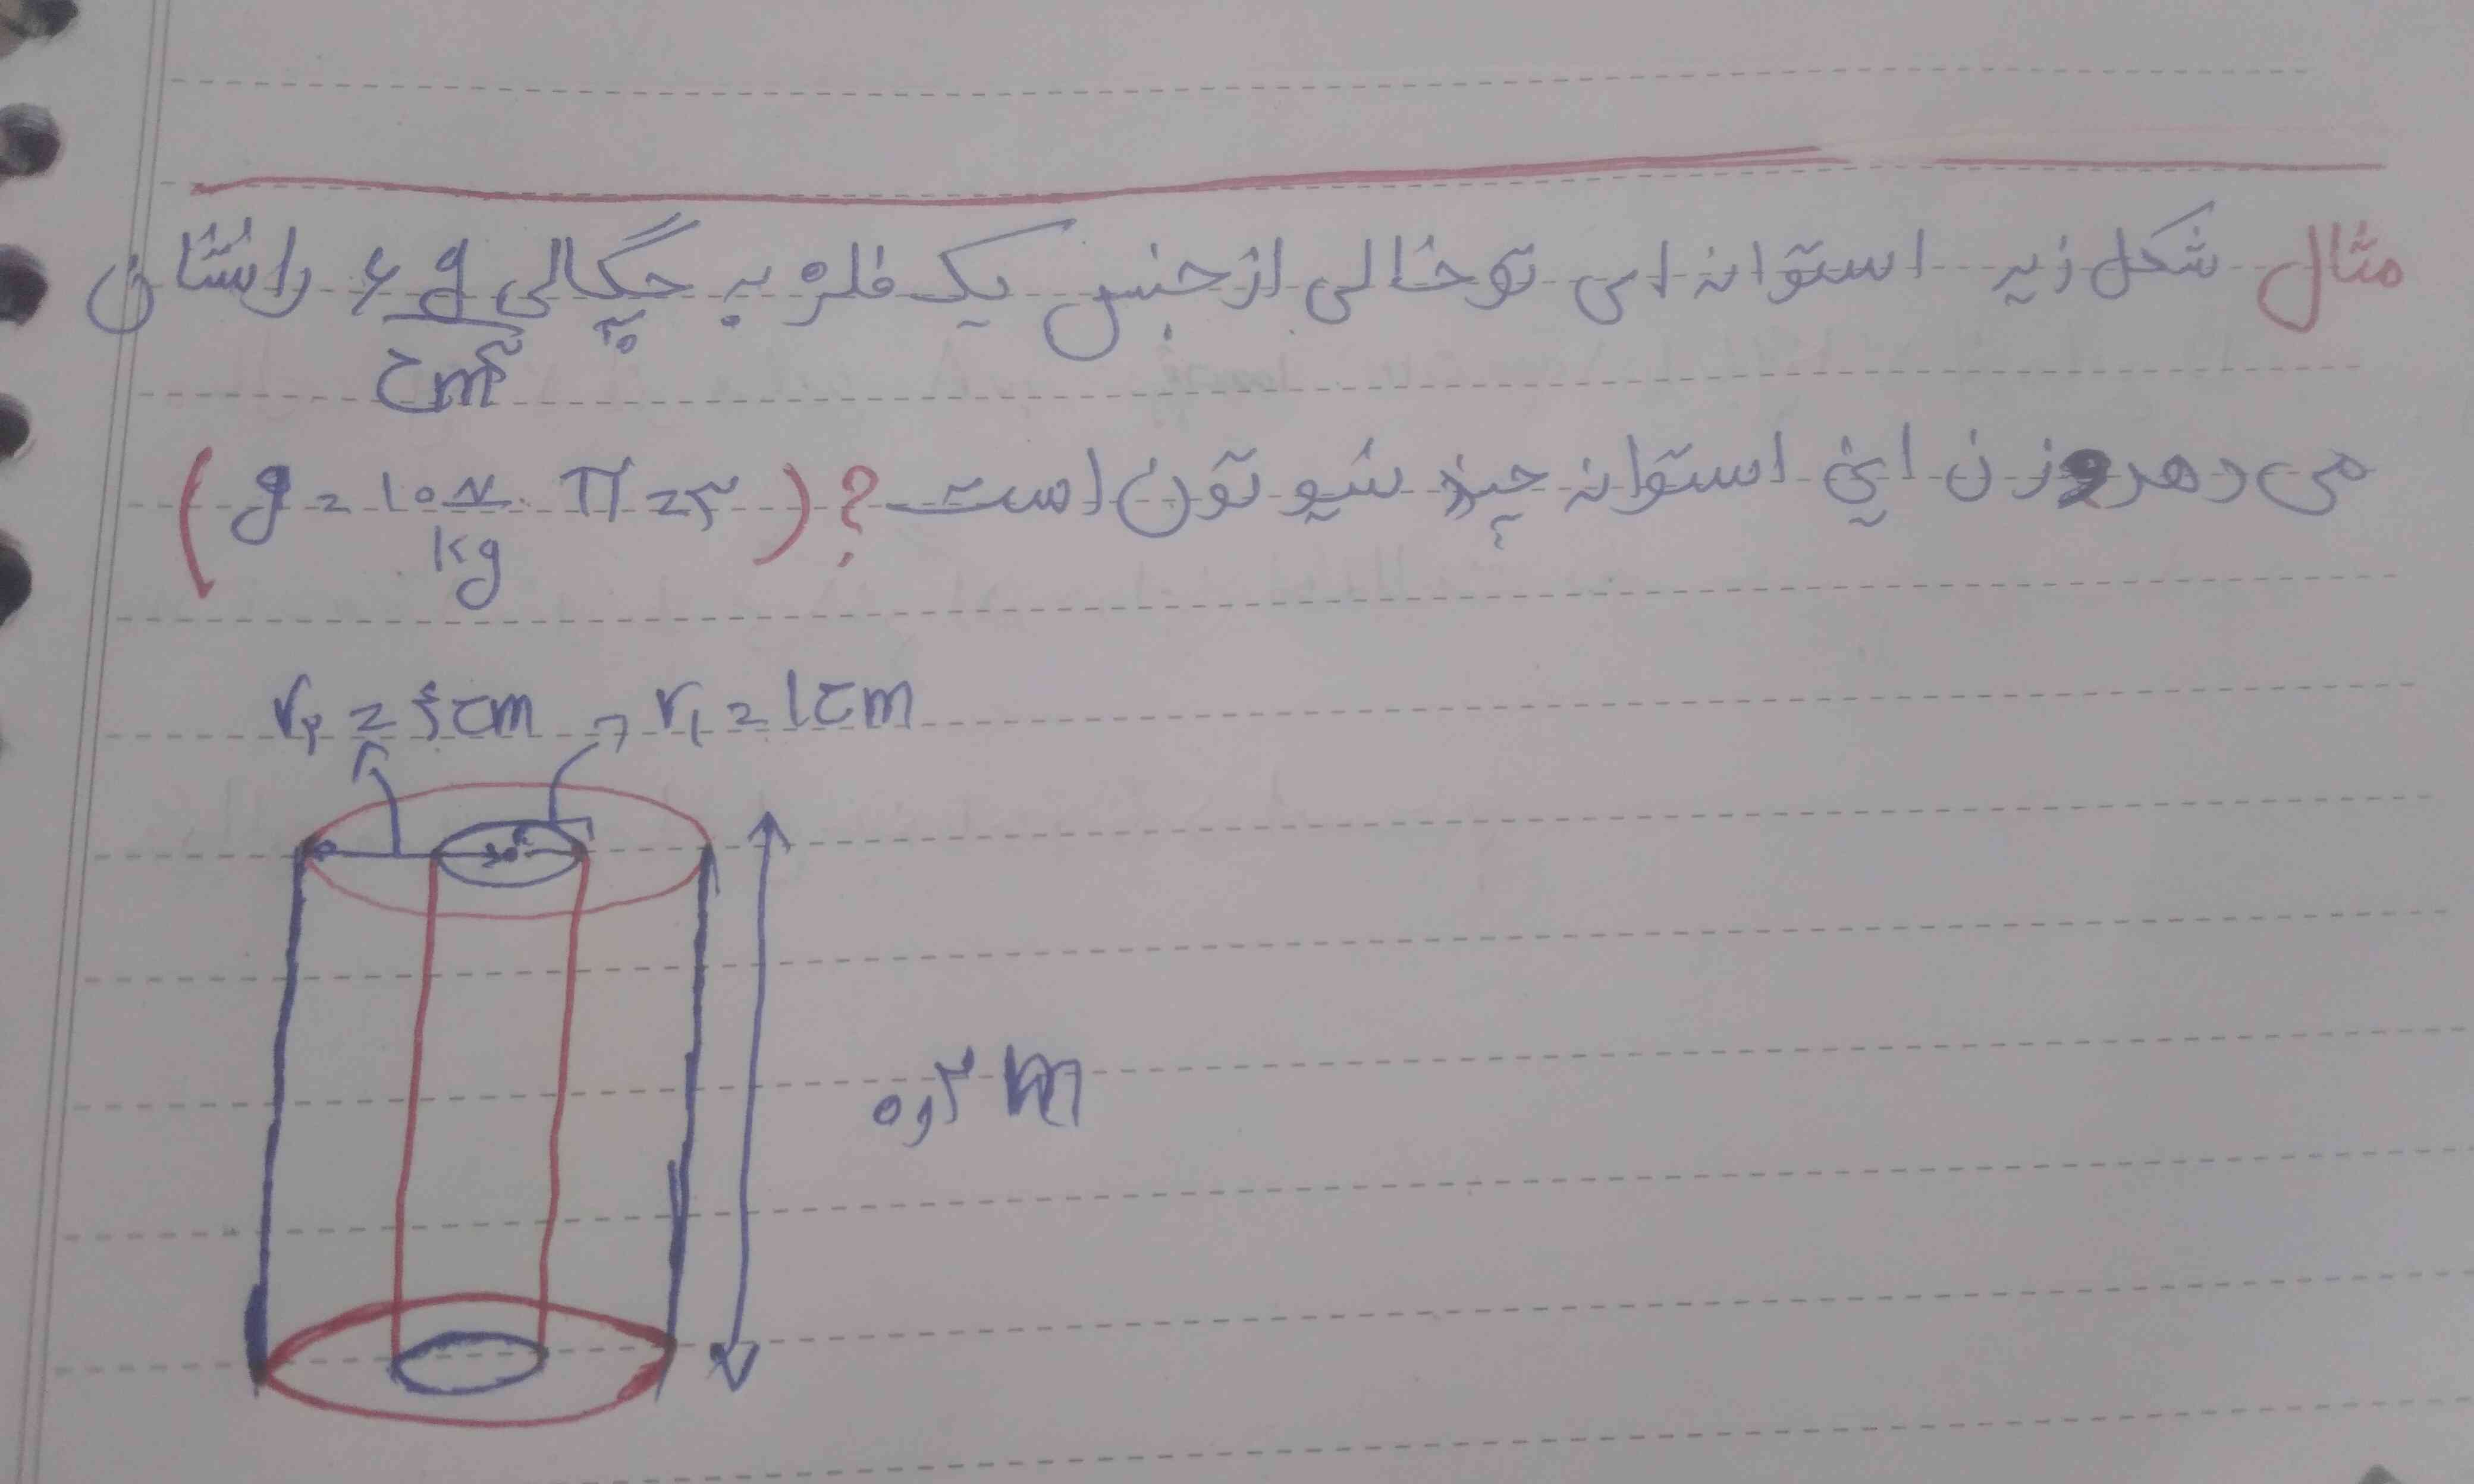 مثال شکل زیر استوانه ای توخالی از جنس یک فلزه به چگالی ۶ g/cm³ را نشان
می دهد وزن این استوانه چند نیوتون است؟ (g = ۱۰ N/kg π = ۳)
r₂ = ۴cm r₁ = ۱cm
۰,۳ m